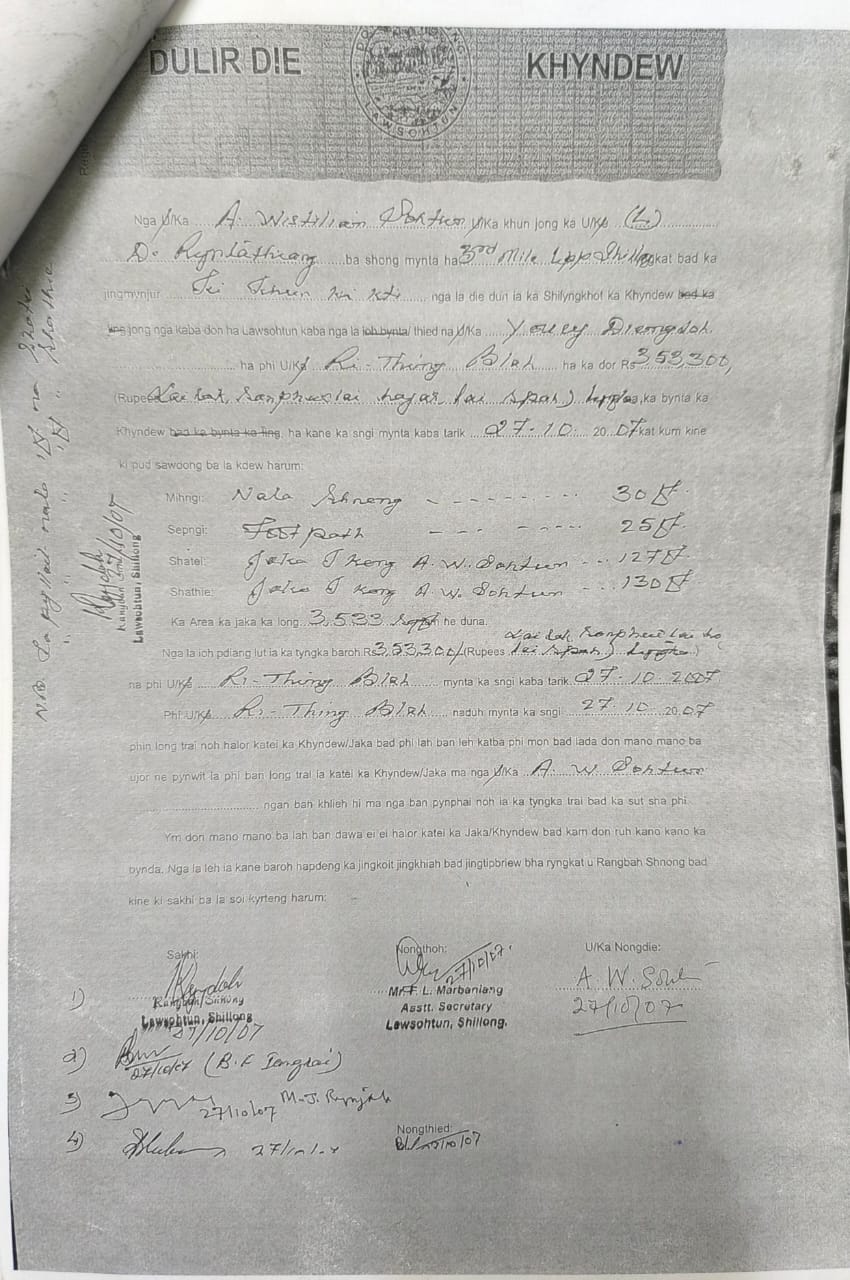 DULIR DIE KHYNDEW
LAWSOHTUN
Nga U/Ka A. Wistilian Sohtun U/Ka khun jong ka U/Ka (L)
D. Ryntathiang ba shong mynta ha 3rd Mile Upp Shillong kat bad ka
jingmynjur nga la die dun ia ka Shilyngkhot ka Khyndew bad ka
ïing jong nga kaba don ha Lawsohtun kaba nga la ioh bynta/ thied na U/Ka Youey Diengdoh
ha phi U/Ka Ri-Thing Blah ha ka dor Rs 353,300,
(Rupees Lai lak, sanphewlai hajar, lai spah) ka bynta ka
Khyndew bad ka bynta ka ïing, ha kane ka sngi mynta kaba tarik 27-10- 2007 kat kum kine
ki pud sawdong ba la kdew harum:
Mihngi: Nala Shnong 30 ft.
Sepngi: Foot path 25 ft.
Shatei: Jaka A.W. Sohtun 127 ft.
Shathie: Jaka A.W. Sohtun 130 ft
Ka Area ka jaka ka long 3,533 Sqft he duna.
Nga la ioh pdiang lut ia ka tyngka baroh Rs 353,300/- (Rupees Lai lak sanphew lai ha
lai spah)
na phi U/Ka Ri-Thing Blah mynta ka sngi kaba tarik 27-10-2007
Phi U/Ka Ri-Thing Blah naduh mynta ka sngi 27.10.2007
phin long trai noh halor katei ka Khyndew/Jaka bad phi lah ban leh katba phi mon bad lada don mano mano ba
ujor ne pynwit la phi ban long trai la katei ka Khyndew/Jaka ma nga U/Ka A. W Sohtun
ngan ban khlieh hi ma nga ban pynphai noh ia ka tyngka trai bad ka sut sha phi.
Ym don mano mano ba lah ban dawa ei ei halor katei ka Jaka/Khyndew bad kam don ruh kano kano ka
bynda. Nga la leh ia kane baroh hapdeng ka jingkoit jingkhiah bad jingtipbriew bha ryngkat u Rangbah Shnong bad
kine ki sakhi ba la soi kyrteng harum:
N.B. La pyllait nala 1ft na Shatei
" " " 1ft " Shathie
27/10/07
Rangbah Shnong
Lawsohtun, Shillong
Sakhi:
1)
Rangbah Shnong
Lawsohtun, Shillong
27/10/07
2) 27/10/07 (B.F Iengrai)
3) 27/10/07 M.J. Rynjah
4)
Nongthoh:
27/10/07.
Mr. F. L. Marbaniang
Asstt. Secretary
Lawsohtun, Shillong.
U/Ka Nongdie:
A. W. Sohtun
27/10/07
Nongthied:
27/10/07